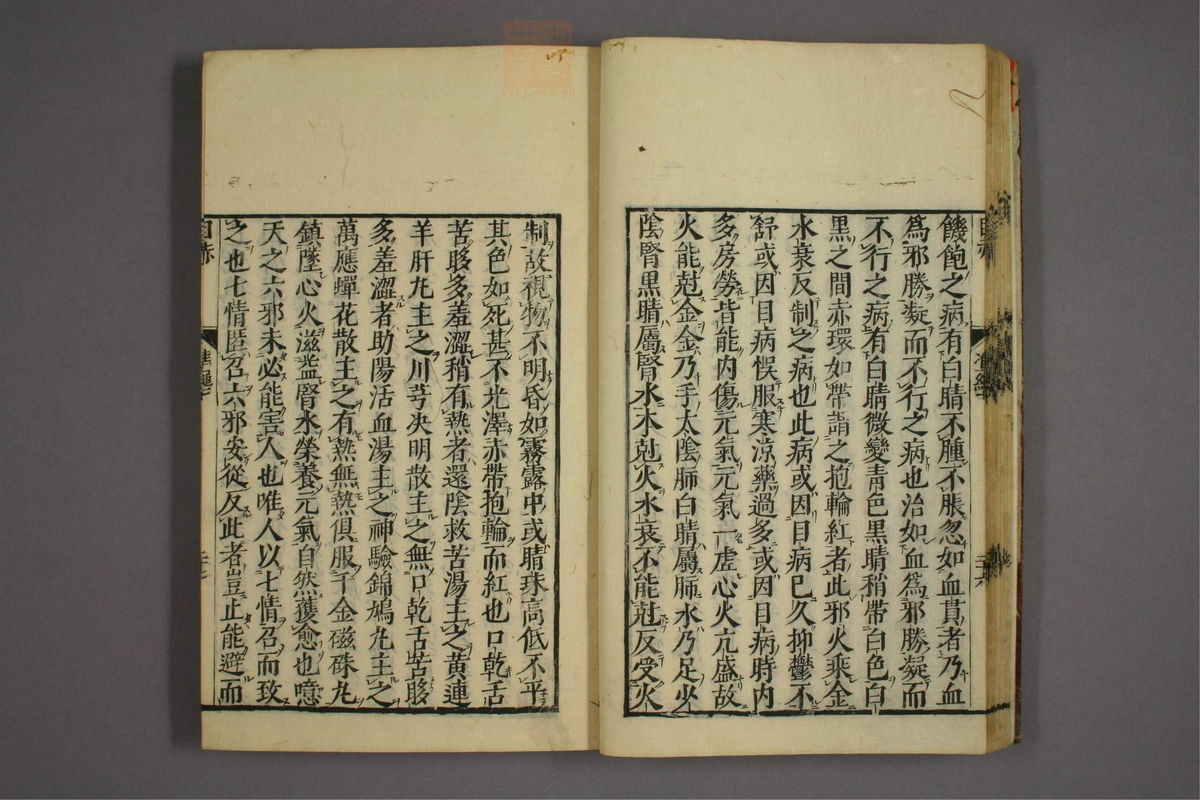 饑飽之病有白睛不腫不脹忽如血貫者乃血
爲邪勝凝而不行之病也治如血爲邪勝凝而
不行之病有白睛微變青色黑睛稍帶白色白
黑之間赤環如帶謂之抱輪紅者此邪火乘金
水衰反制之病也此病或因目病已久抑鬱不
舒或因目病悞服寒涼藥過多或因目病時内
多房勞皆能内傷元氣元氣一虚心火亢盛故
火能尅金金乃手太陰肺白睛屬肺水乃足少
陰腎黑睛屬腎水本尅火水衰不能尅反受火
目赤
準繩七
二十六
制故視物不明昏如霧露中或睛珠高低不平
其色如死甚不光澤赤帶抱輪而紅也口乾舌
苦眵多羞澀稍有熱者還陰救苦湯主之黄連
羊肝九主之川芎决明散主之無口乾舌苦眵
多羞澀者助陽活血湯主之神驗錦鳩九主之
萬應蟬花散主之有熱無熱俱服千金磁硃九
鎮墜心火滋益腎水榮養元氣自然獲愈也噫
天之六邪未必能害人也唯人以七情召而致
之也七情匪召六邪安從反此者豈止能避而
目赤